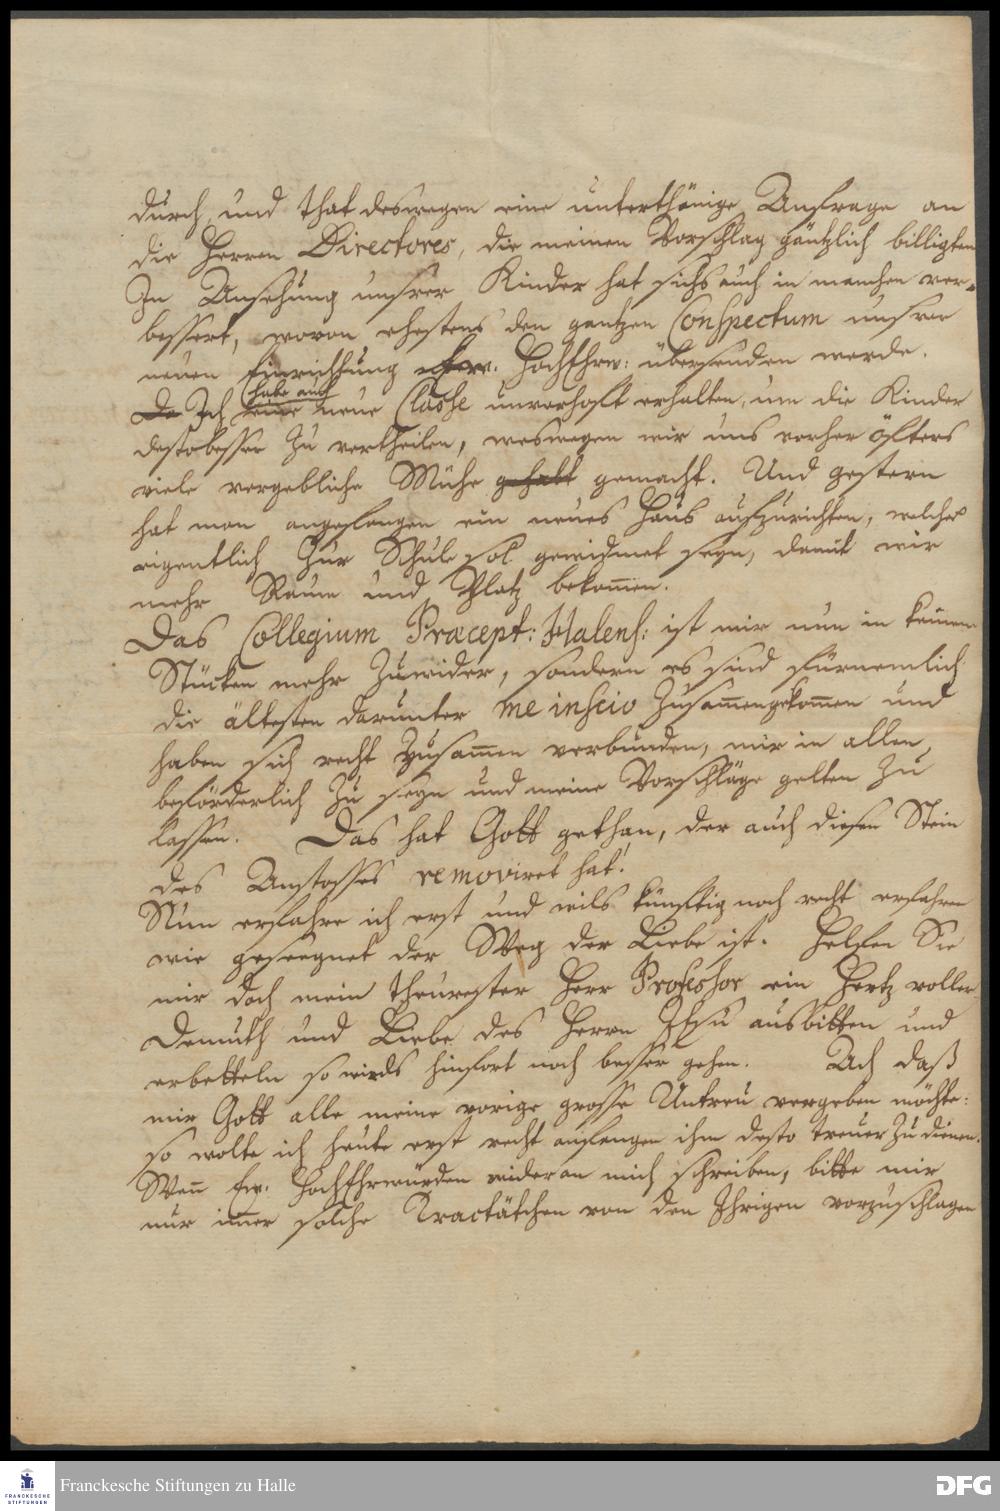 durch und that deswegen eine unterthänige Anfrage an
die Herren Directores, die meinen Vorschlag gäntzlich billigten
In Ansehung unsrer Kinder hat sichs auch in manchen ver-
bessert, wovon ehestens den gantzen Conspectum unsrer
neuen Einrichtung Ew. HochEhrw: übersenden werde.
habe auch
Da Ich eine neue Classe unverhoft erhalten, um die Kinder
destobesser zu vertheilen, weswegen wir uns vorher öfters
viele vergebliche Mühe gehabt gemacht. Und gestern
hat man angefangen ein neues Haus aufzurichten, welches
eigentlich zur Schule sol gewidmet seyn, damit wir
mehr Raum und Platz bekom̄en.
Das Collegium Præcept: Halens: ist mir nun in keinem
Stücken mehr zuwider, sondern es sind fürnemlich
die ältesten darunter me inscio zusam̄engekom̄en und
haben sich recht zusam̄en verbunden, mir in allen
beförderlich zu seyn und meine Vorschläge gelten zu
lassen. Das hat Gott gethan, der auch diesen Stein
des Anstosses removiret hat!
Nun erfahre ich erst und wils künftig noch recht erfahren
wie geseegnet der Weg der Liebe ist. Helfen Sie
mir doch mein theurester Herr Professor ein Hertz voller
Demuth und Liebe des Herrn JEsu ausbitten und
erbetteln so wirds hinfort noch besser gehen. Ach daß
mir Gott alle meine vorige grosse Untreu vergeben möchte:
so wolte ich heute erst recht anfangen ihm desto treuer zu dienen.
Wen̄ Ew. HochEhrwürden wider an mich schreiben, bitte mir
nur im̄er solche Tractätchen von den Ihrigen vorzuschlagen
FRANCKESCHE
STIFTUNGEN
Franckesche Stiftungen zu Halle
DFG